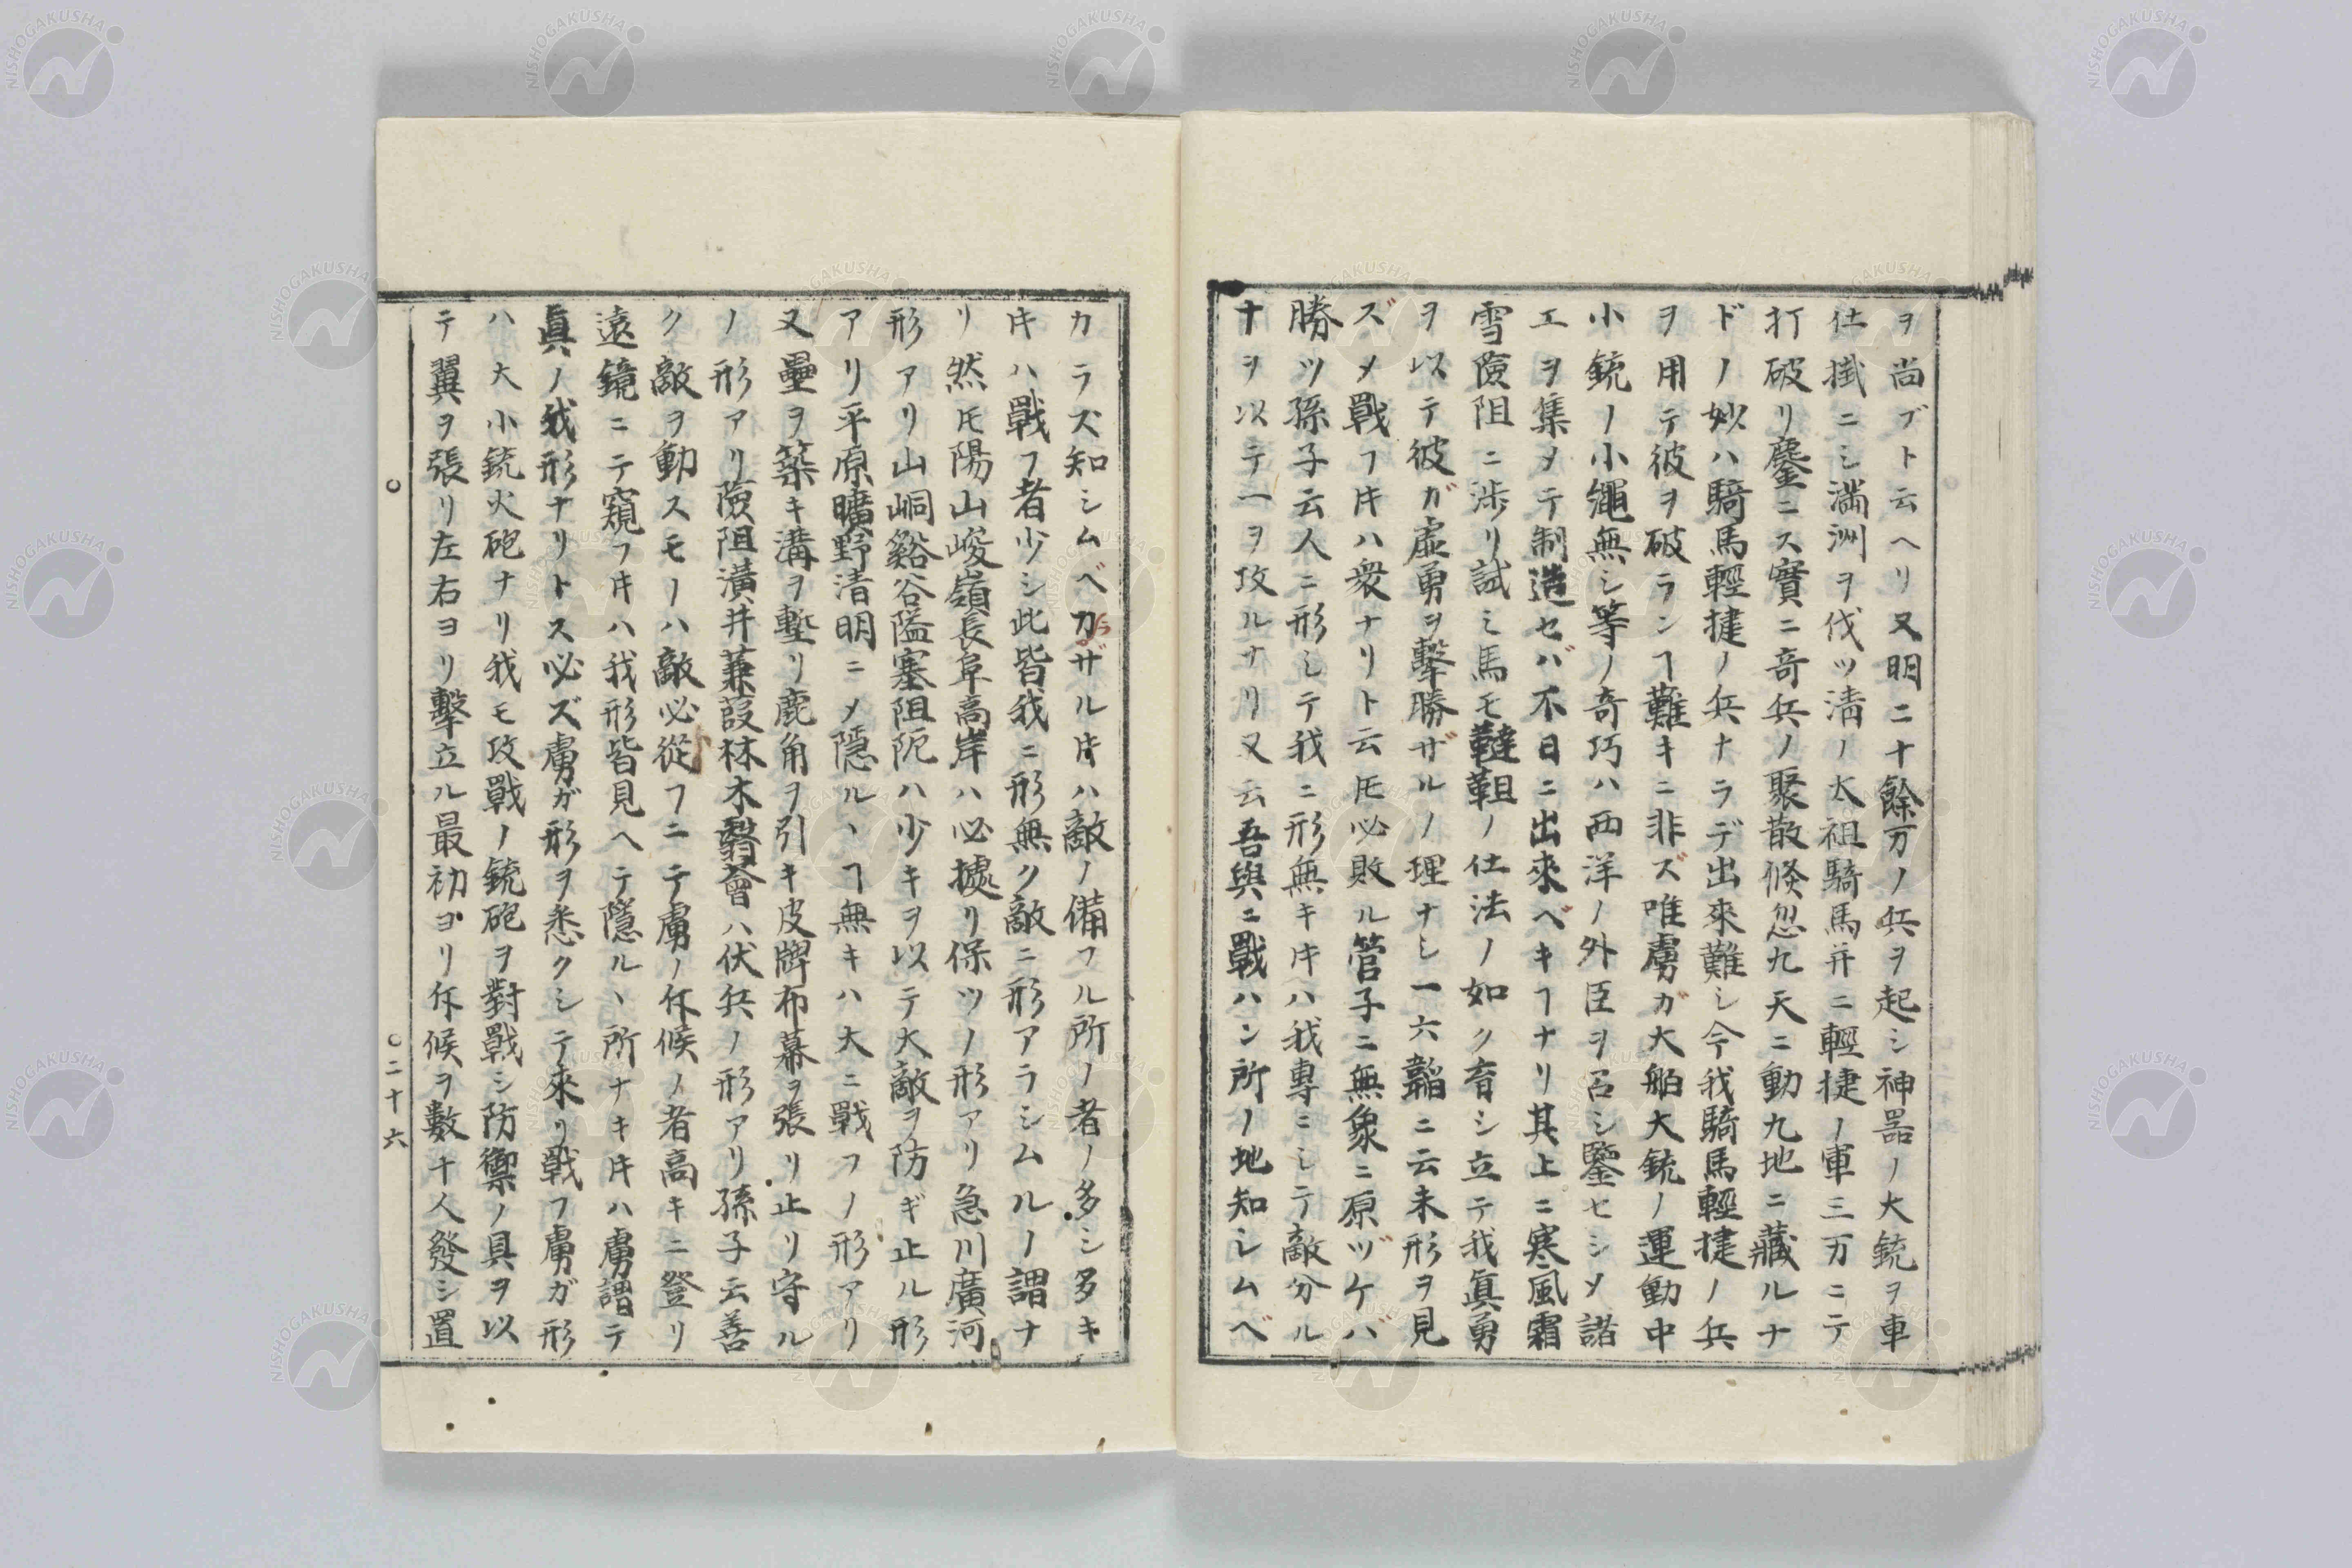 ヲ尚ブト云ヘリ又明二十餘万ノ兵ヲ起シ神器ノ大銃ヲ車
仕掛ニシ満洲ヲ伐ツ淸ノ太祖騎馬并ニ輕捷ノ軍三万ニテ
打破リ鏖ニス實ニ奇兵ノ聚散倏忽九天ニ動九地ニ藏ルナ
ドノ妙ハ騎馬輕捷ノ兵ナラデ出來難シ今我騎馬輕捷ノ兵
ヲ用テ彼ヲ破ランヿ難キニ非ズ唯虜ガ大舶大銃ノ運動中
小銃ノ小繩無シ等ノ奇巧ハ西洋ノ外臣ヲ召シ鑒セシメ諸
工ヲ集メテ制造セバ不日ニ出來ベキヿナリ其上ニ寒風霜
雪險阻ニ渉リ試ミ馬モ韃靼ノ仕法ノ如ク育シ立テ我眞勇
ヲ以テ彼ガ虛勇ヲ擊勝ザルノ理ナシ一六韜ニ云未形ヲ見
ズメ戰フ𪜈ハ衆ナリト云𪜈必敗ル管子ニ無象ニ原ヅケバ
勝ツ孫子云人ニ形シテ我ニ形無キ𪜈ハ我專ニシテ敵分ル
十ヲ以テ一ヲ攻ルナリ又云吾與ニ戰ハン所ノ地知シムベ
カラズ知シムベカラザル𪜈ハ敵ノ備フル所ノ者ノ多シ多キ
𪜈ハ戰フ者少シ此皆我ニ形無ク敵ニ形アラシムルノ謂ナ
リ然𪜈陽山峻嶺長阜高岸ハ必據リ保ツノ形アリ急川廣河
形アリ山峒谿谷隘塞阻阨ハ少キヲ以テ大敵ヲ防ギ止ル形
アリ平原曠野淸明ニメ隱ルヽヿ無キハ大ニ戰フノ形アリ
又壘ヲ築キ溝ヲ塹リ鹿角ヲ引キ皮牌布幕ヲ張リ止リ守ル
ノ形アリ險阻潢井蒹葭林木翳薈ハ伏兵ノ形アリ孫子云善
ク敵ヲ動スモノハ敵必從フニテ虜ノ斥候ノ者高キニ登リ
遠鏡ニテ窺フ𪜈ハ我形皆見ヘテ隱ルヽ所ナキ𪜈ハ虜謂テ
眞ノ我形ナリトス必ズ虜ガ形ヲ悉クシテ來リ戰フ虜ガ形
ハ大小銃火砲ナリ我モ攻戰ノ銃砲ヲ對戰シ防禦ノ具ヲ以
テ翼ヲ張リ左右ヨリ擊立ル最初ヨリ斥候ヲ數十人發シ置
二十六